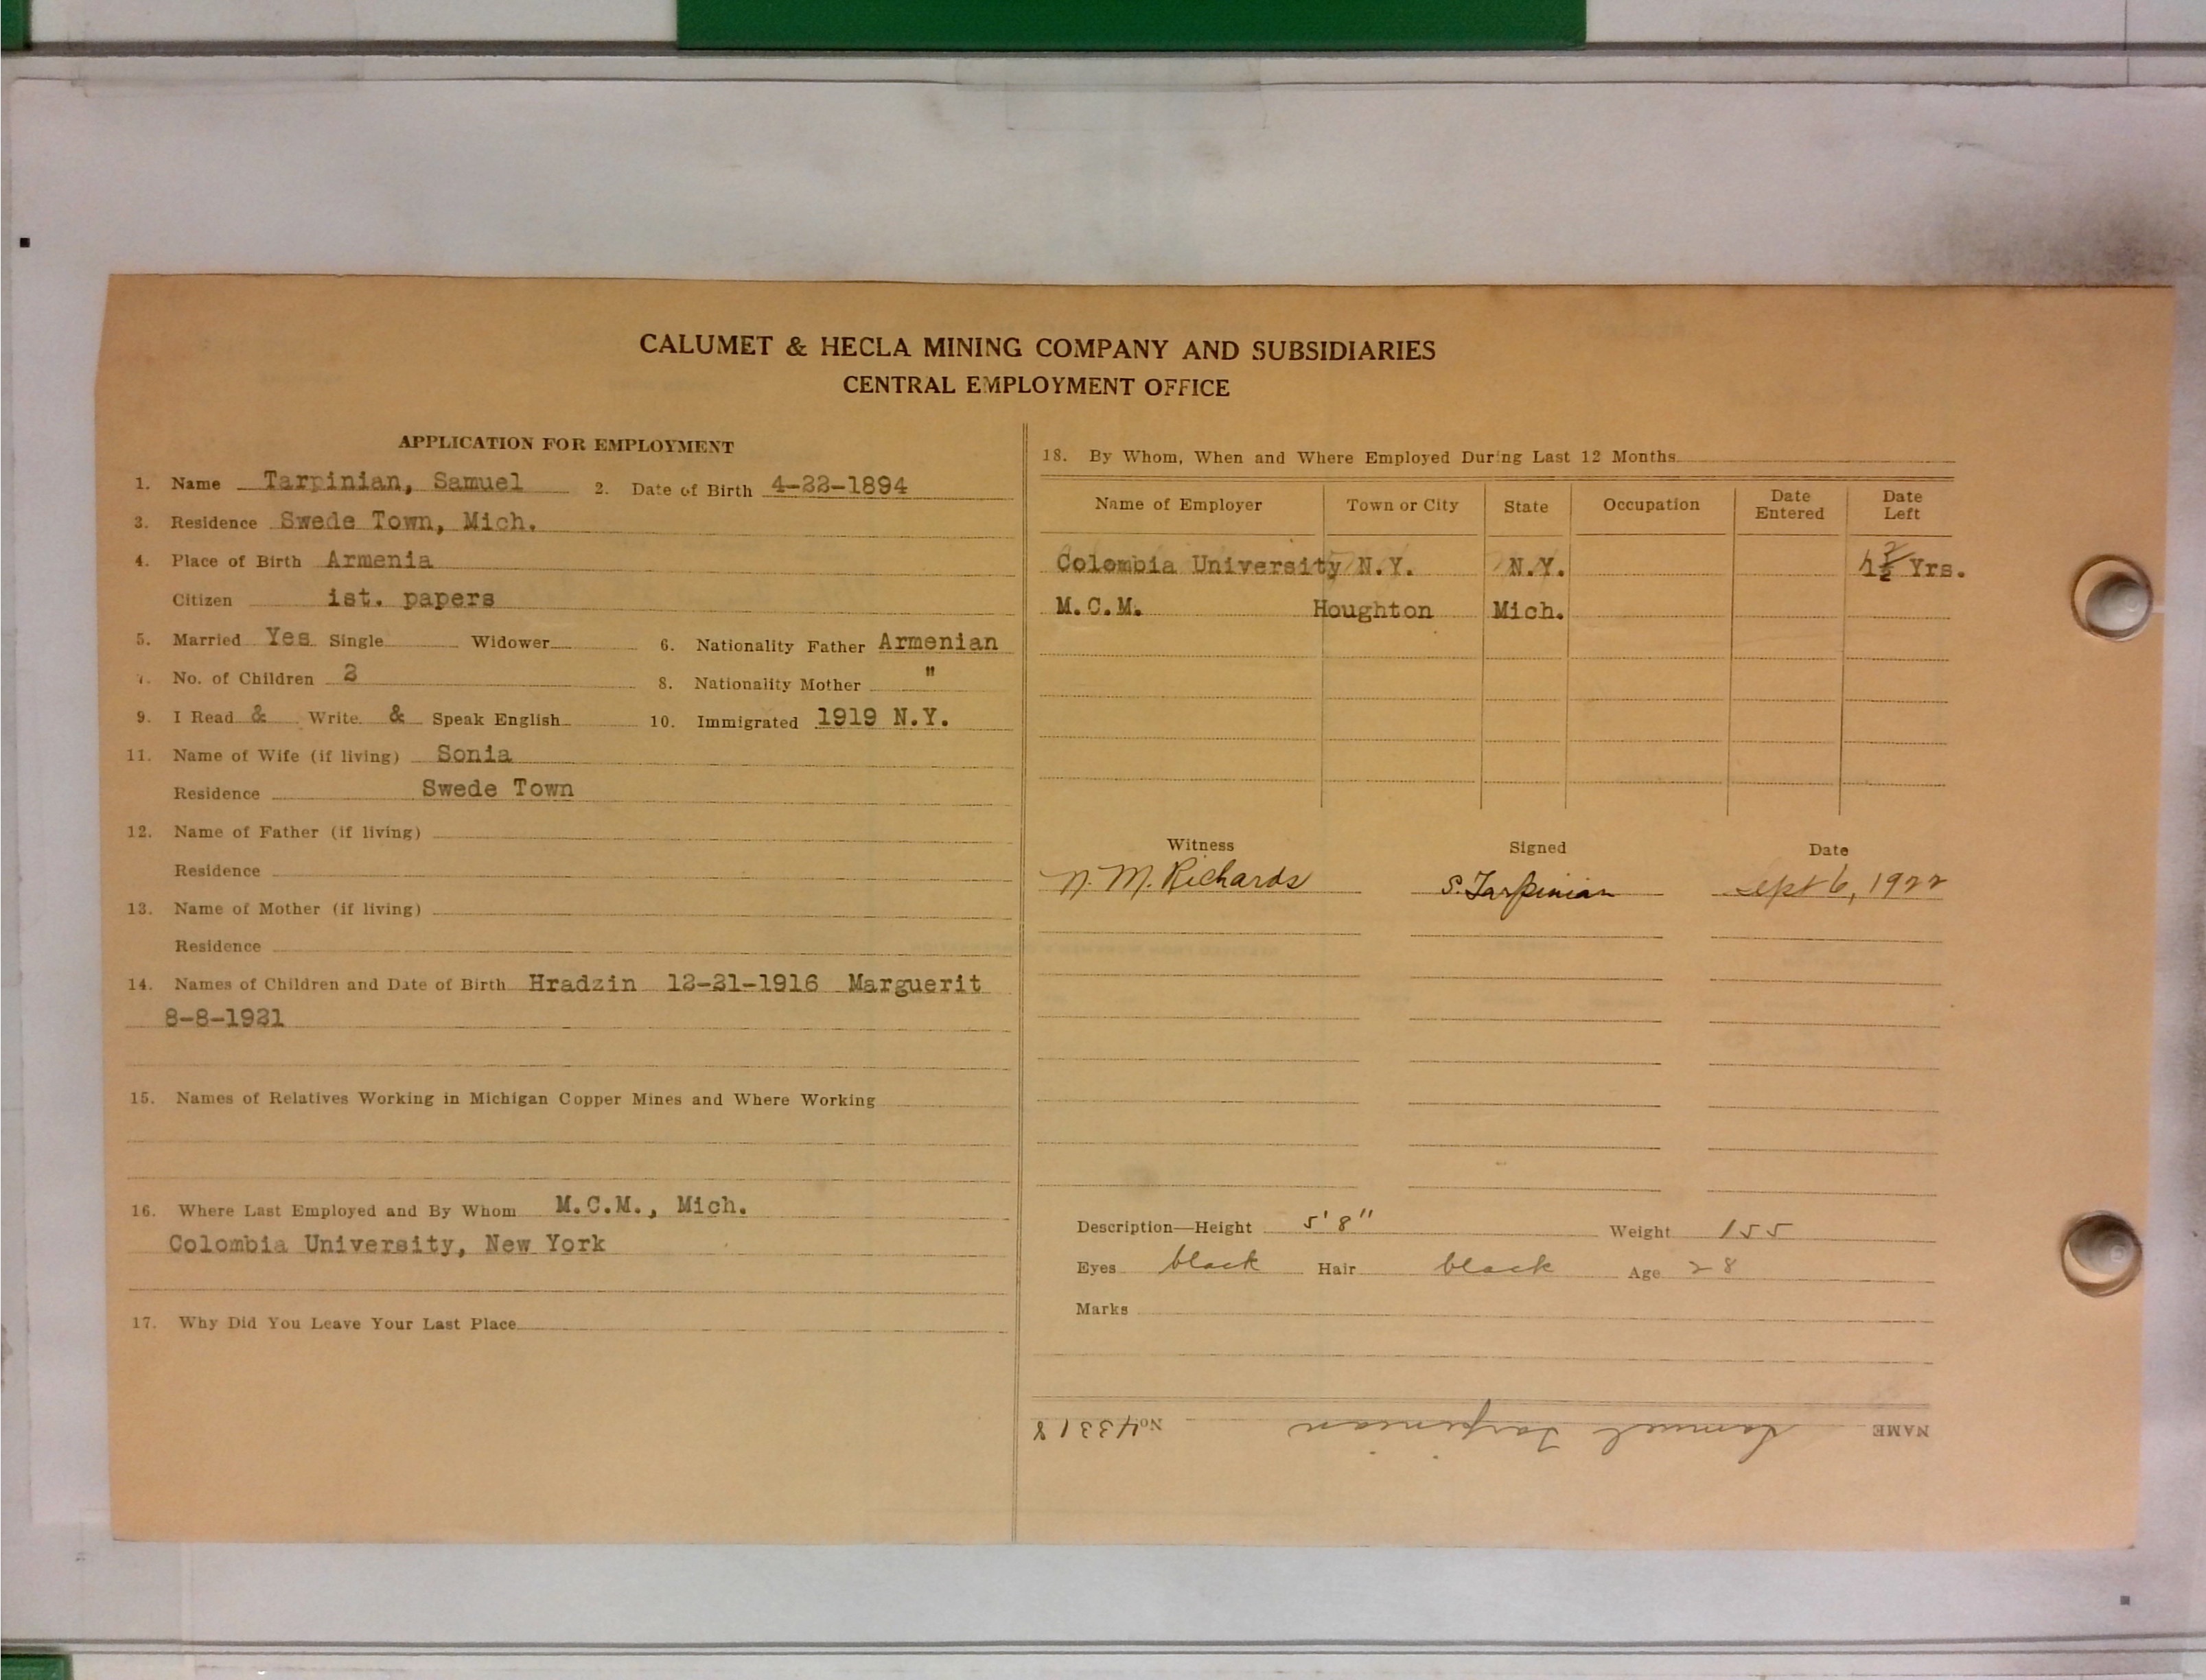 CALUMET & HECLA MINING COMPANY AND SUBSIDIARIES
CENTRAL EMPLOYMENT OFFICE
APPLICATION FOR EMPLOYMENT
1. Name Tarpinian, Samuel 2. Date of Birth 4-22-1894
3. Residence Swede Town, Mich.
4. Place of Birth Armenia
Citizen ist. papers
5. Married Yes Single Widower 6. Nationality Father Armenian
7. No. of Children 2 8. Nationality Mother "
9. I Read & Write & Speak English 10. Immigrated 1919 N.Y.
11. Name of Wife (if living) Sonia
Residence Swede Town
12. Name of Father (if living)
Residence
13. Name of Mother (if living)
Residence
14. Names of Children and Date of Birth Hradzin 12-21-1916 Marguerit
8-8-1921
15. Names of Relatives Working in Michigan Copper Mines and Where Working
16. Where Last Employed and By Whom M.C.M., Mich.
Colombia University, New York
17. Why Did You Leave Your Last Place
18. By Whom, When and Where Employed During Last 12 Months
Name of Employer Town or City State Occupation Date Entered Date Left
Colombia University N.Y. N.Y. Yrs.
M.C.M. Houghton Mich.
Witness Signed Date
N. M. Richards S. Tarpinian Sept 6, 1922
Description—Height 5'8" Weight 155
Eyes black Hair black Age 28
Marks
NAME Samuel Tarpinian No 43318